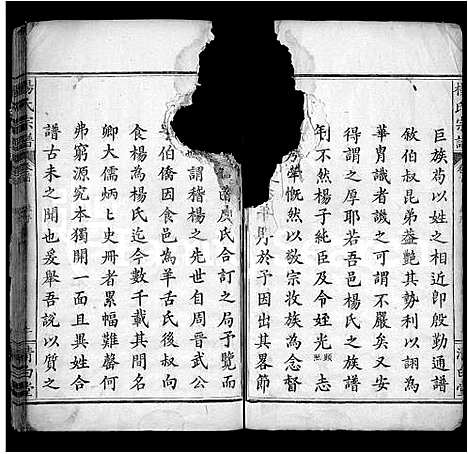 楊氏宗譜
巨族苟以姓之相近即殷勤通譜
敘伯叔昆弟益艷其勢利以詡為
華胄識者譏之可不嚴矣又安
得謂之厚耶若吾邑楊氏之族譜
不然楊子純臣及令姪光顯照志
慨然以敬宗收族為念督
於予因出其畧節
氏合訂之局予覽而
謂稽楊之先世自周晉武公
伯僑因食邑為羊舌氏後叔向
食楊為楊氏迄今數千載其間名
卿大儒炳上史冊者累幅難罄何
弗窮源究本獨開一面且異姓合
譜古未之聞也爰舉吾說以質之
楊氏宗譜
清白堂